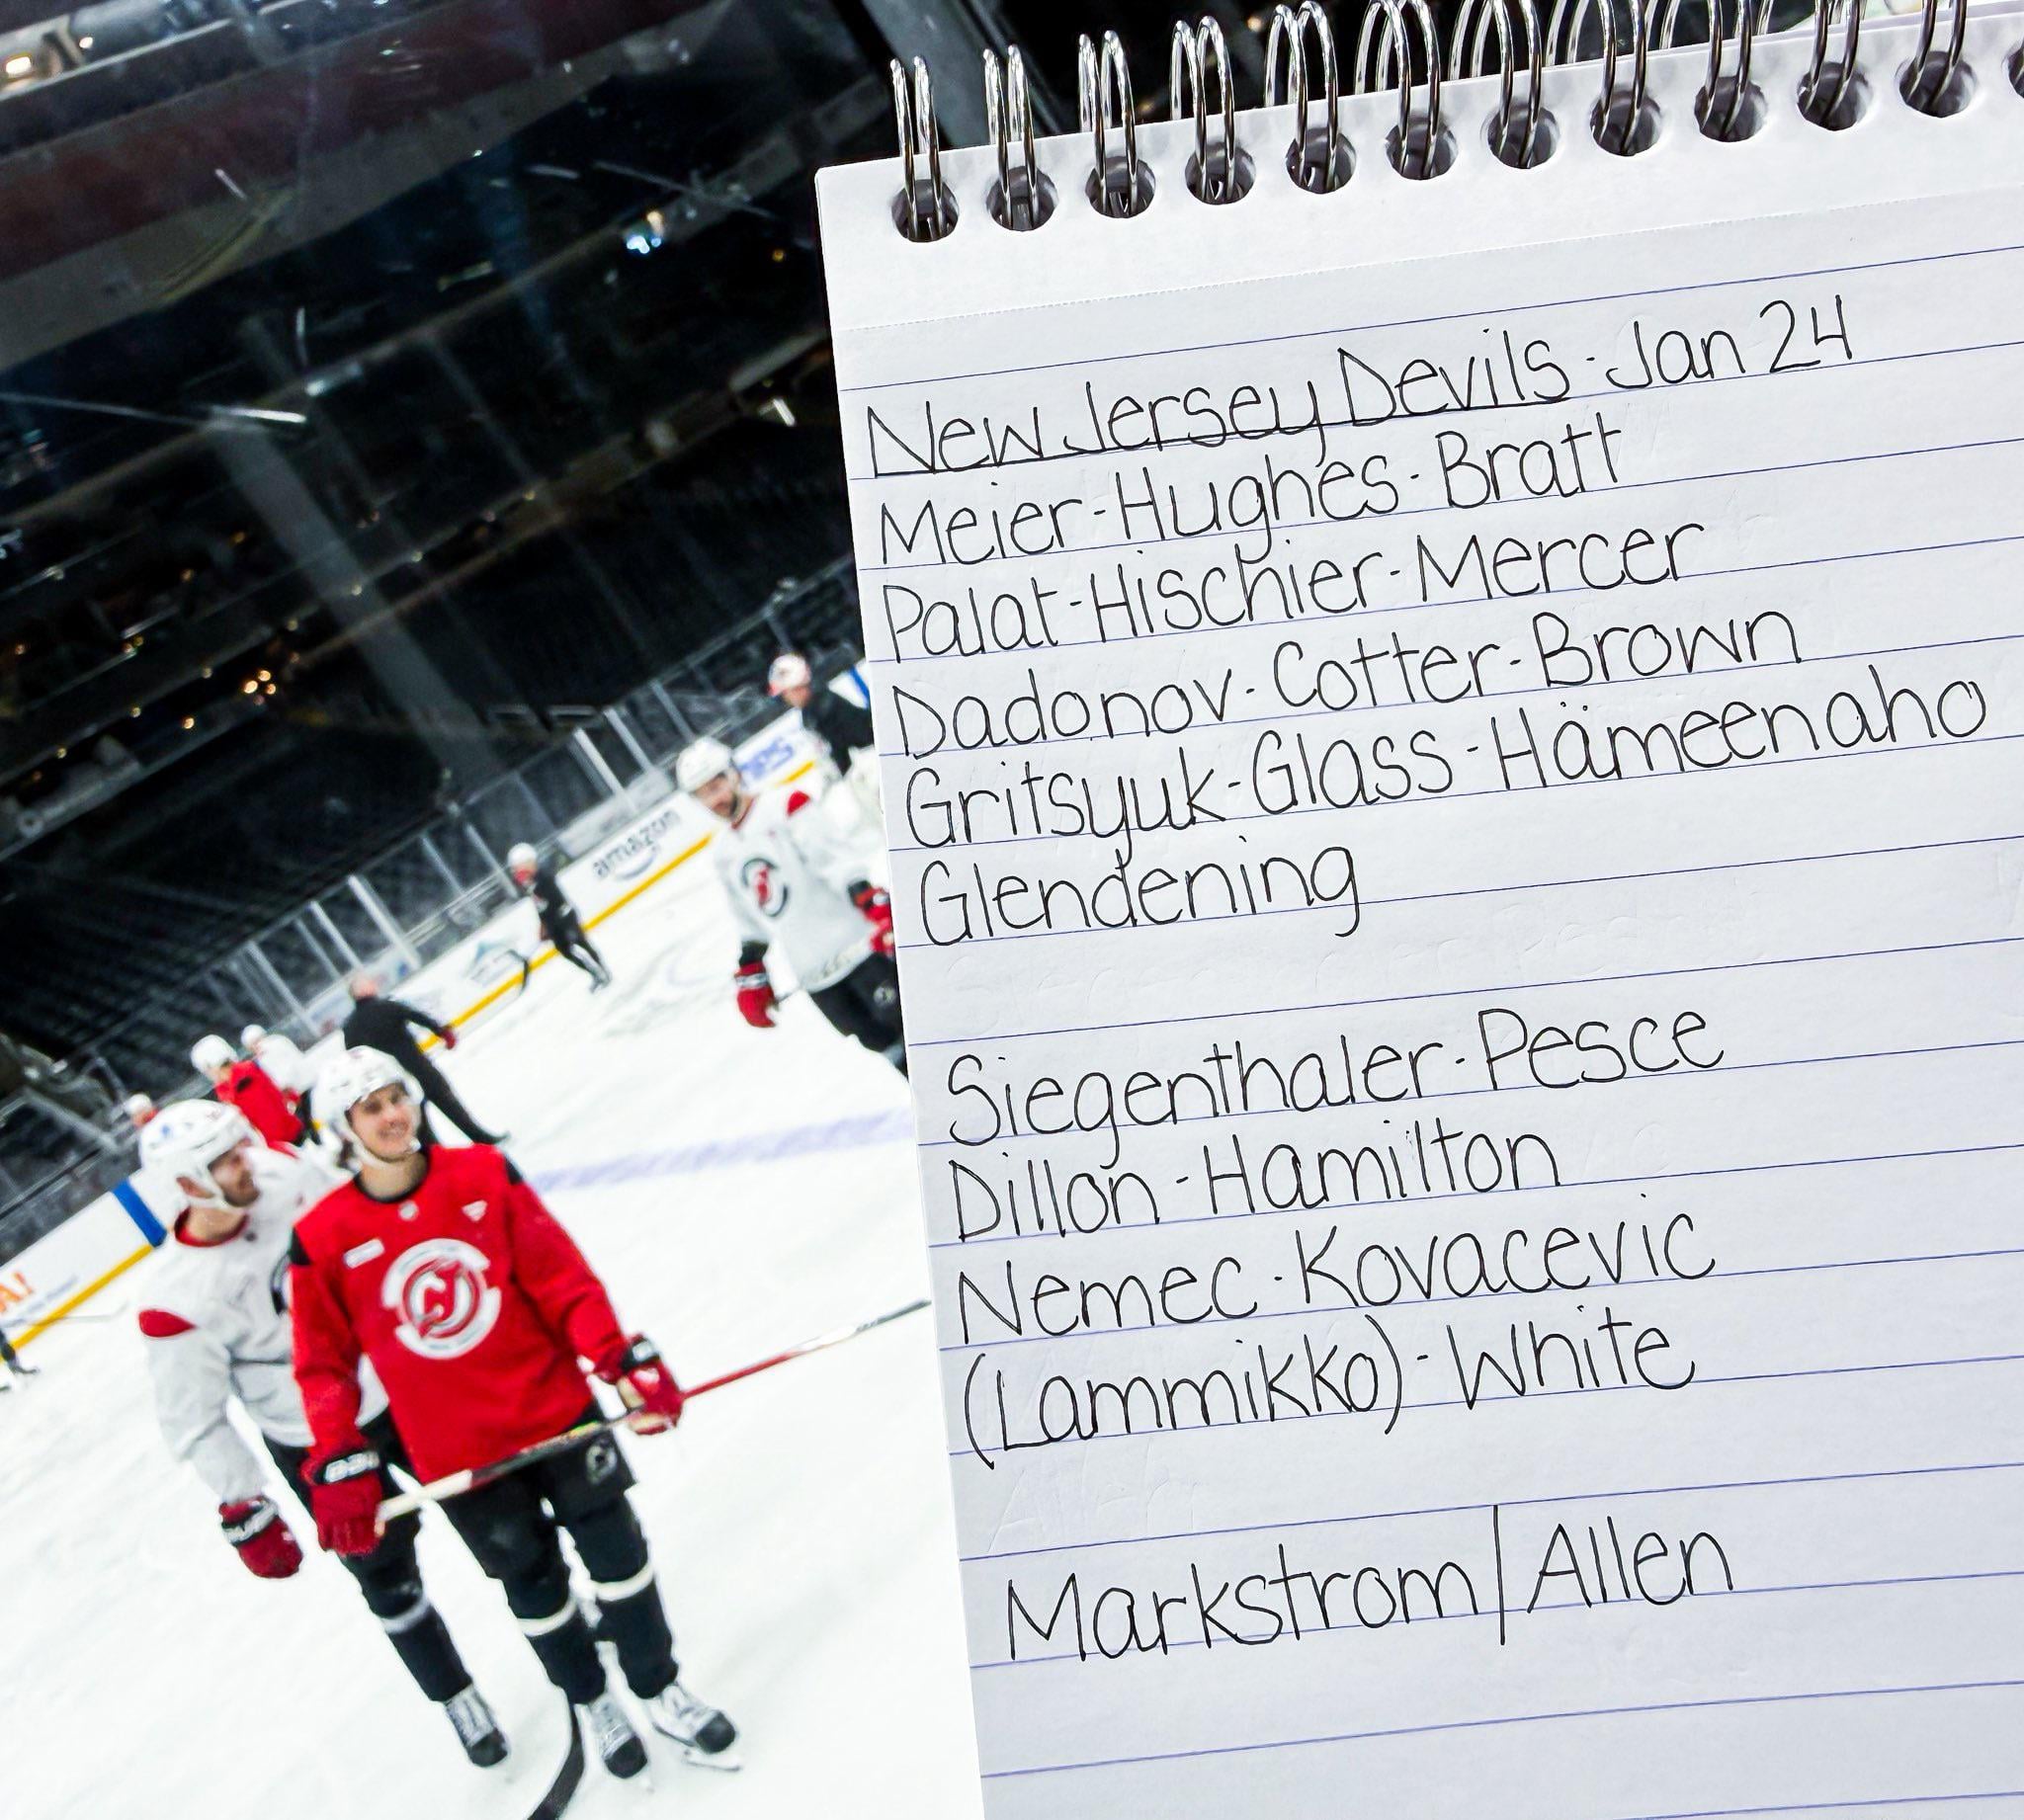 New Jersey Devils - Jan 24
Meier-Hughes-Bratt
Palat-Hischier-Mercer
Dadonov-Cotter-Brown
Gritsyuk-Glass-Hämeenaho
Glendening
Siegenthaler-Pesce
Dillon-Hamilton
Nemec-Kovacevic
(Lammikko)-White
Markstrom/Allen
amazon
A!